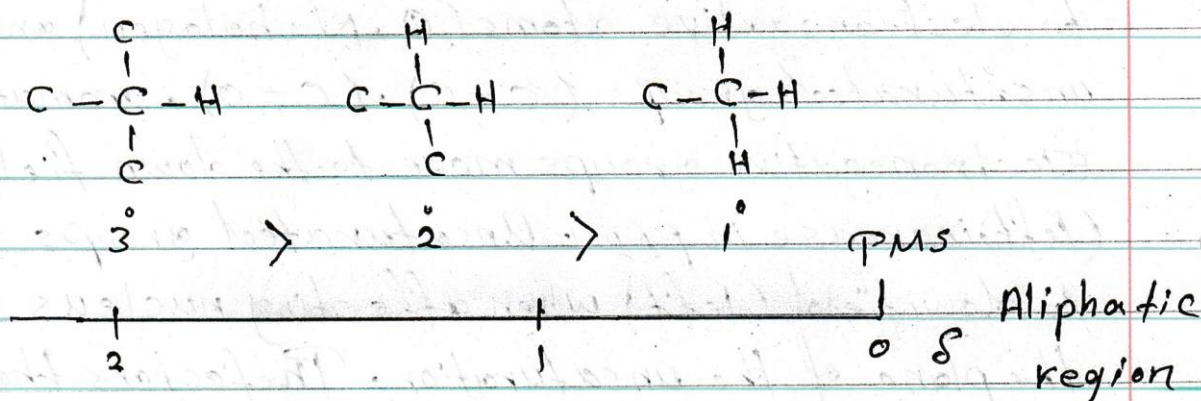 C H H
C - C - H C - C - H C - C - H
C C H
3° > 2° > 1° PMS
2 1 0 δ Aliphatic
region